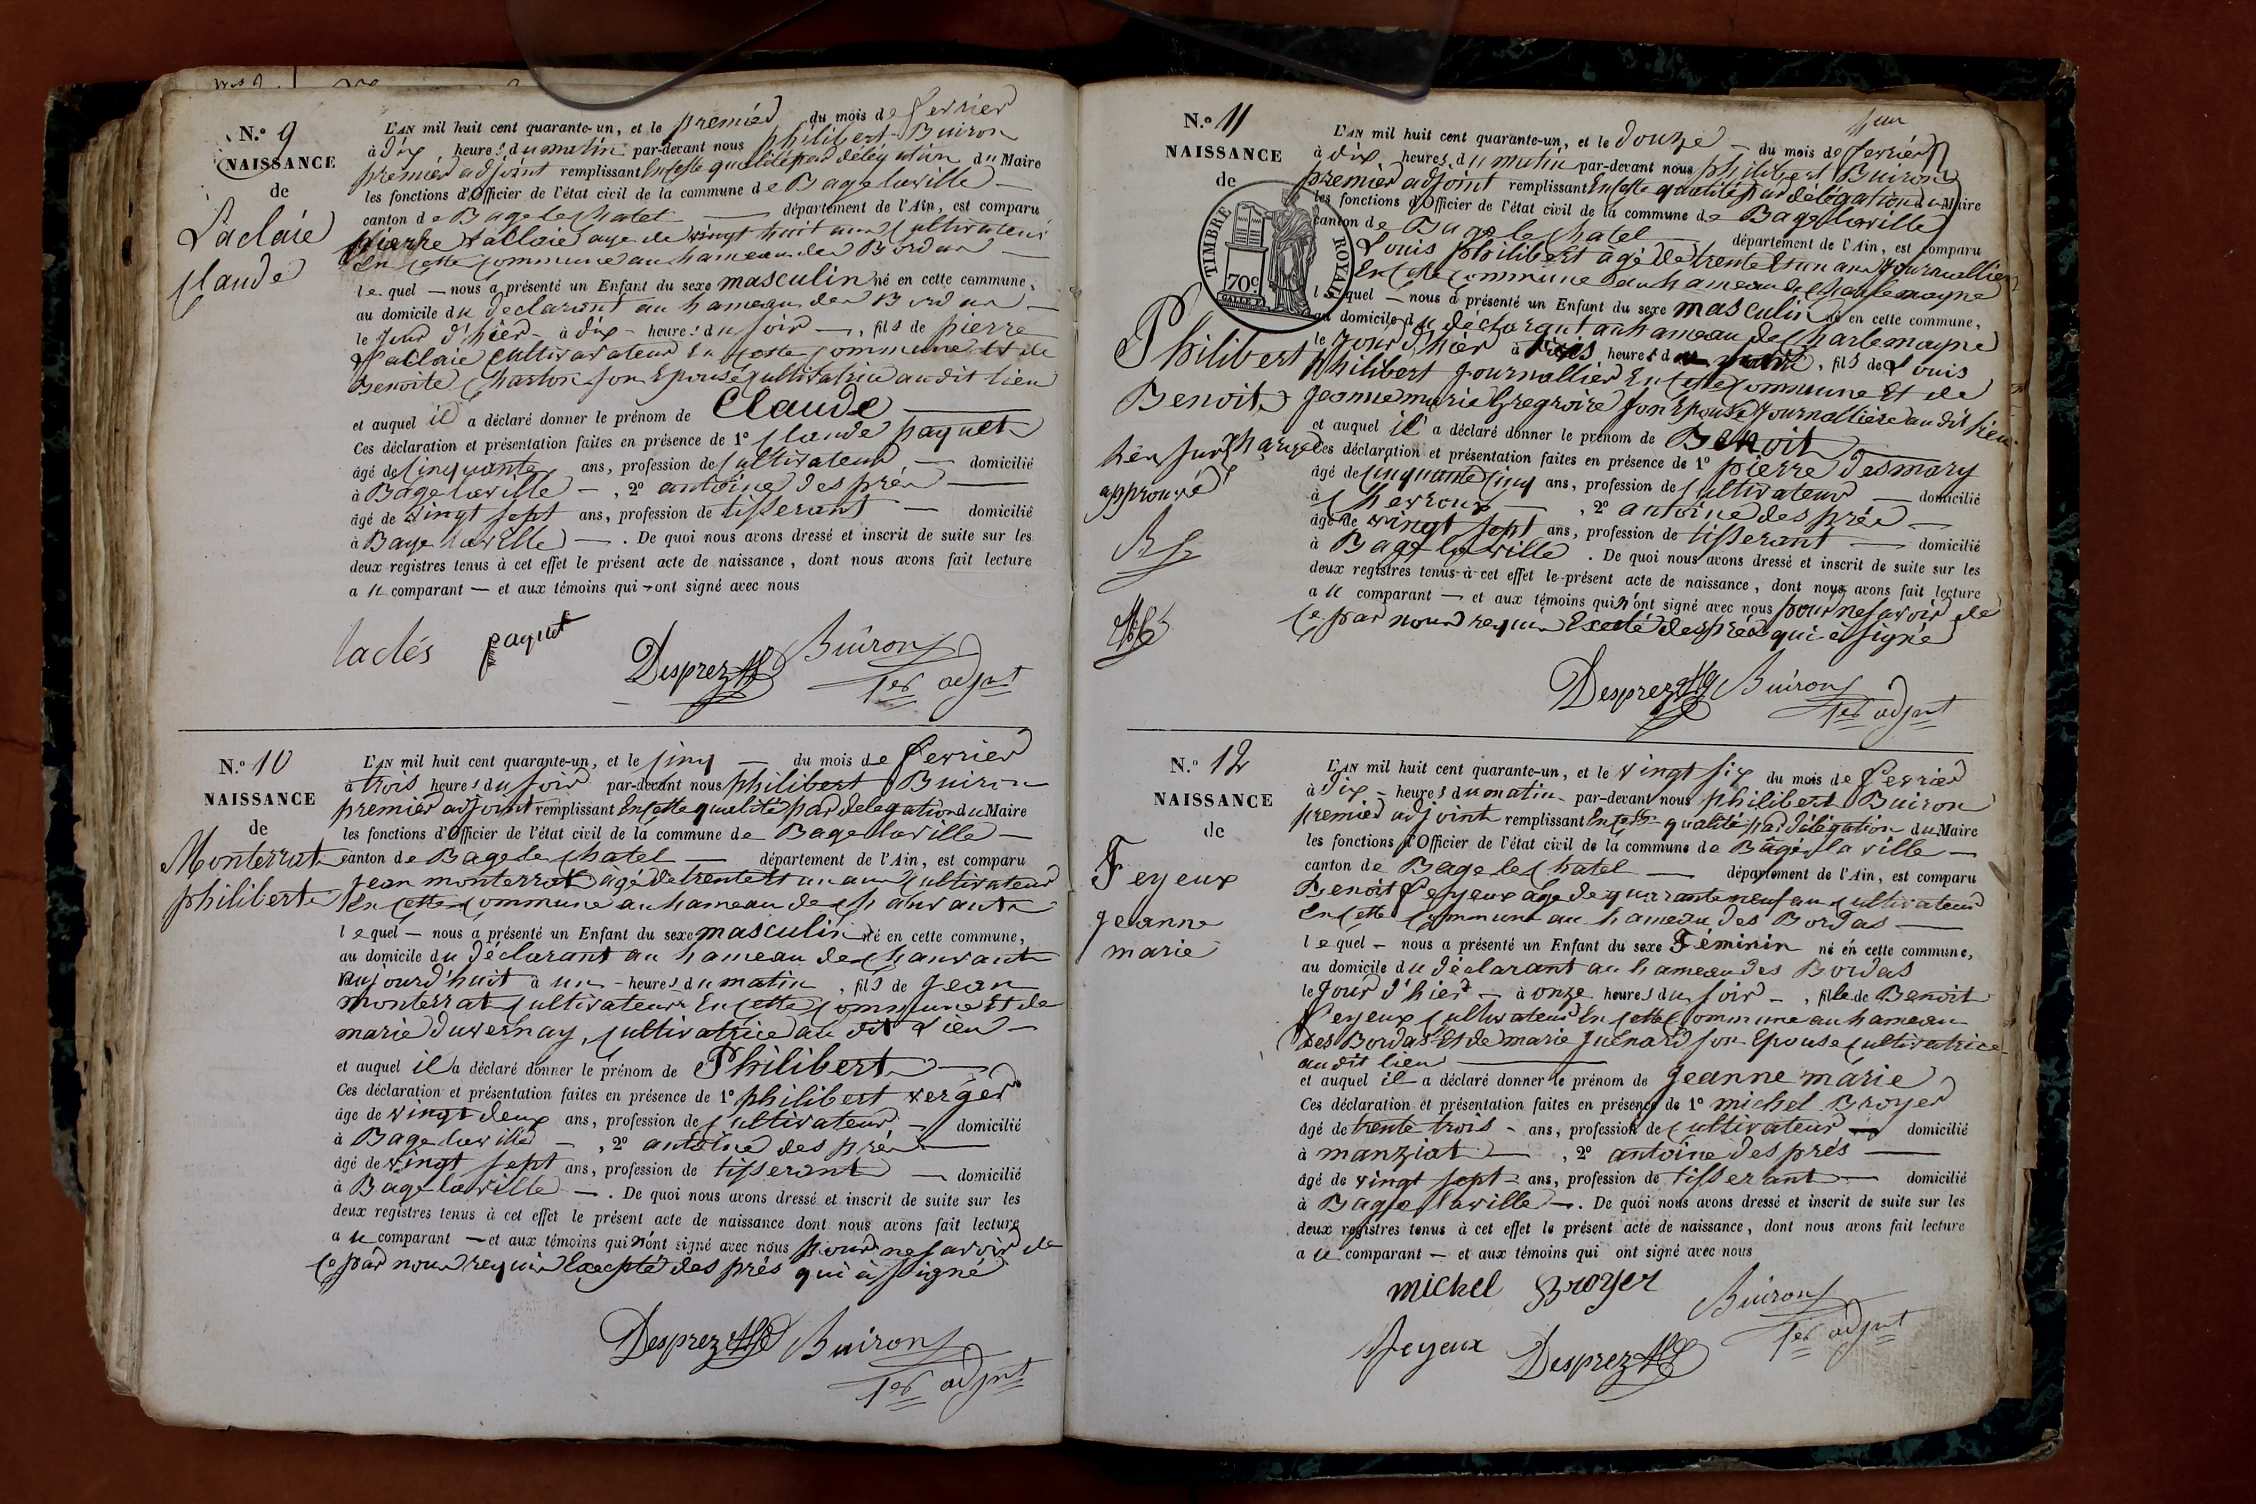 N.º 9
NAISSANCE
de
Laclaié
Claude
L'AN mil huit cent quarante-un, et le premier du mois de fevrier
à dix heures du matin par-devant nous philibert Buiron
premier adjoint remplissant En cette qualité par délégation du Maire
les fonctions d'Officier de l'état civil de la commune de Bage laville
canton de Bage le Chatel département de l'Ain, est comparu
pierre Lallaie age de vingt huit ans Cultivateur
En cette commune au hameau des Bordas
lequel nous a présenté un Enfant du sexe masculin né en cette commune,
au domicile du declarant au hameau des Bordas
le jour d'hier à dix heures du soir, fils de pierre
Lallaie Cultivavateur En cette commune Et de
Benoite Charton son Epouse Cultivatrice au dit lieu
et auquel il a déclaré donner le prénom de Claude
Ces déclaration et présentation faites en présence de 1º Claude paquet
âgé de Cinquante ans, profession de Cultivateur domicilié
à Bage laville, 2º antoine des prés
âgé de vingt sept ans, profession de tisserant domicilié
à Bage laville. De quoi nous avons dressé et inscrit de suite sur les
deux registres tenus à cet effet le présent acte de naissance, dont nous avons fait lecture
au comparant et aux témoins qui ont signé avec nous
laclés paquet Desprez Buiron
1er adjnt
N.º 10
NAISSANCE
de
Monterrat
philibert
L'AN mil huit cent quarante-un, et le Cinq du mois de fevrier
à trois heures du soir par-devant nous philibert Buiron
premier adjoint remplissant En cette qualité par delegation du Maire
les fonctions d'Officier de l'état civil de la commune de Bage laville
canton de Bage le Chatel département de l'Ain, est comparu
jean monterrat agé de trente Et un ans Cultivateur
En cette commune au hameau de Chanvant
lequel nous a présenté un Enfant du sexe masculin né en cette commune,
au domicile du déclarant au hameau de Chanvant
aujourd'huit à un heures du matin, fils de jean
monterrat Cultivateur En cette commune Et de
marie duvernay, Cultivatrice au dit lieu
et auquel il a déclaré donner le prénom de Philibert
Ces déclaration et présentation faites en présence de 1º philibert verger
âge de vingt deux ans, profession de Cultivateur domicilié
à Bage laville, 2º antoine des prés
âgé de vingt sept ans, profession de tisserant domicilié
à Bage laville. De quoi nous avons dressé et inscrit de suite sur les
deux registres tenus à cet effet le présent acte de naissance dont nous avons fait lecture
au comparant et aux témoins qui n'ont signé avec nous pour ne savoir de
Ce par nous requis Excepté des prés qui à signé
Desprez Buiron
1er adjnt
N.º 11
NAISSANCE
de
TIMBRE ROYAL
70c
Philibert
Benoit
Rénsurcharge
approuvé
L'AN mil huit cent quarante-un, et le douze du mois de fevrier
à dix heures du matin par-devant nous philibert Buiron
premier adjoint remplissant En cette qualité par délégation du Maire
les fonctions d'Officier de l'état civil de la commune de Bage laville
canton de Bage le Chatel département de l'Ain, est comparu
Louis philibert agé de trente Et un ans journallier
En cette commune au hameau de Charlemagne
lequel nous a présenté un Enfant du sexe masculin né en cette commune,
au domicile du déclarant au hameau de Charlemagne
le jour d'hier à heures du, fils de Louis
philibert journallier En cette commune Et de
jeanne marie Gregroire son Epouse journallière au dit lieu
et auquel il a déclaré donner le prénom de Benoit
Ces déclaration et présentation faites en présence de 1º pierre desmary
âgé de Cinquante Cinq ans, profession de Cultivateur domicilié
à Chevroux, 2º antoine des prés
âgé de vingt sept ans, profession de tisserant domicilié
à Bage laville. De quoi nous avons dressé et inscrit de suite sur les
deux registres tenus à cet effet le présent acte de naissance, dont nous avons fait lecture
au comparant et aux témoins qui n'ont signé avec nous pour ne savoir de
Ce par nous requis Excepté des prés qui à signé
Desprez Buiron
1er adjnt
N.º 12
NAISSANCE
de
Feyeux
jeanne
marie
L'AN mil huit cent quarante-un, et le vingt six du mois de fevrier
à dix heures du matin par-devant nous philibert Buiron
premier adjoint remplissant En cette qualité par délégation du Maire
les fonctions d'Officier de l'état civil de la commune de Bâgé la ville
canton de Bage le Chatel département de l'Ain, est comparu
Benoit feyeux âge de quarrante neuf an Cultivateur
En cette Commune au hameau des Bordas
lequel nous a présenté un Enfant du sexe Féminin né en cette commune,
au domicile du déclarant au hameau des Bordas
le jour d'hier à onze heures du soir, fille de Benoit
Feyeux Cultivateur En cette Commune au hameau
des Bordas Et de marie Juénard son Epouse Cultivatrice
au dit lieu
et auquel il a déclaré donner le prénom de jeanne marie
Ces déclaration et présentation faites en présence de 1º michel Broyer
âgé de trente trois ans, profession de Cultivateur domicilié
à manziat, 2º antoine des prés
âgé de vingt sept ans, profession de tisserant domicilié
à Bage laville. De quoi nous avons dressé et inscrit de suite sur les
deux registres tenus à cet effet le présent acte de naissance, dont nous avons fait lecture
au comparant et aux témoins qui ont signé avec nous
michel Broyer Buiron
1er adjnt
feyeux Desprez